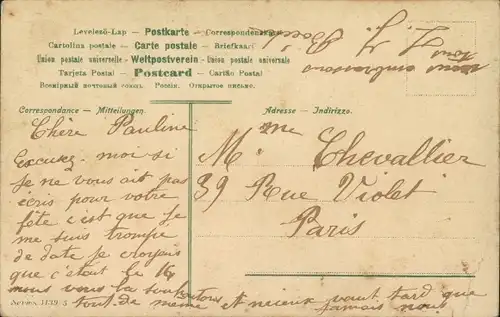 Levelező-Lap — Postkarte — Correspondenzkarte
Cartolina postale — Carte postale — Briefkaart
Union postale universelle — Weltpostverein — Unión postale universale
Tarjeta Postal — Postcard — Cartão Postal
Всемірный почтовый союзъ. Россія. Открытое письмо.
Correspondance — Mitteilungen.
Adresse — Indirizzo.
Chère Pauline
Excusez-moi si
je ne vous ait pas
écris pour votre
fête c'est que je
me suis trompe
de date je croyais
que c'était le 16
nous vous la souhaitons
tout de même et mieux vaut tard que
jamais nous
Mme Chevallier
39 Rue Violet
Paris